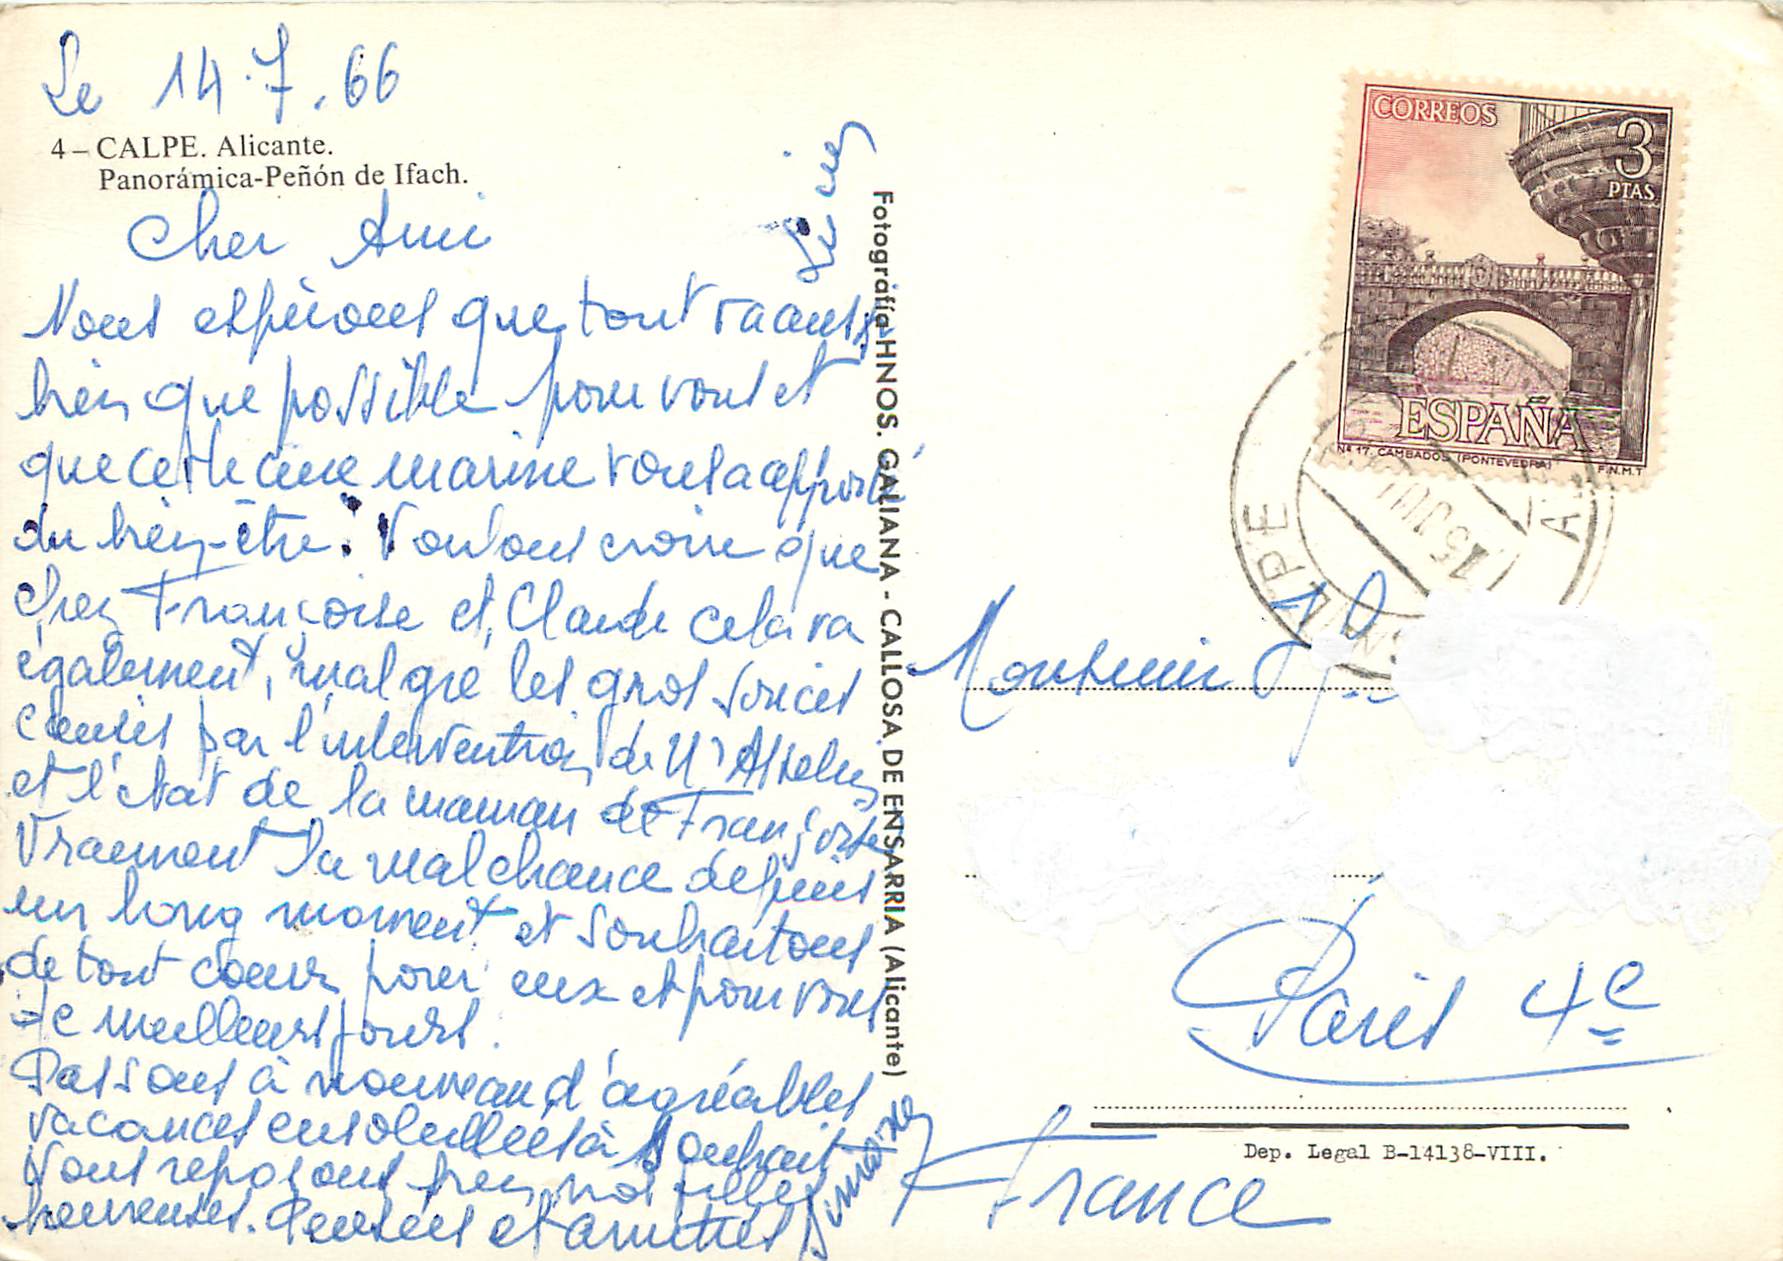 Le 14.7.66
4 – CALPE. Alicante.
Panorámica-Peñón de Ifach.
Cher Ami
Nous espérons que tout va aussi
bien que possible pour vous et
que cette cure marine vous a apporté
du bien-être. Voulons croire que
chez Françoise et Claude cela va
également, malgré les gros soucis
causés par l'intervention de Mr
et l'état de la maman de Françoise
Vraiment la malchance depuis
un long moment et souhaitons
de tout coeur pour eux et pour vous
de meilleurs jours.
Passons à nouveau d'agréables
vacances ensoleillées à souhait
Nous reposons bien, nos filles
heureuses. Pensées et amitiés
Fotografía HNOS. GALIANA - CALLOSA DE ENSARRIA (Alicante)
CORREOS
3
PTAS
ESPAÑA
Nº 17. CAMBADOS (PONTEVEDRA)
F.N.M.T
Monsieur
Paris 4e
France
Dep. Legal B-14138-VIII.